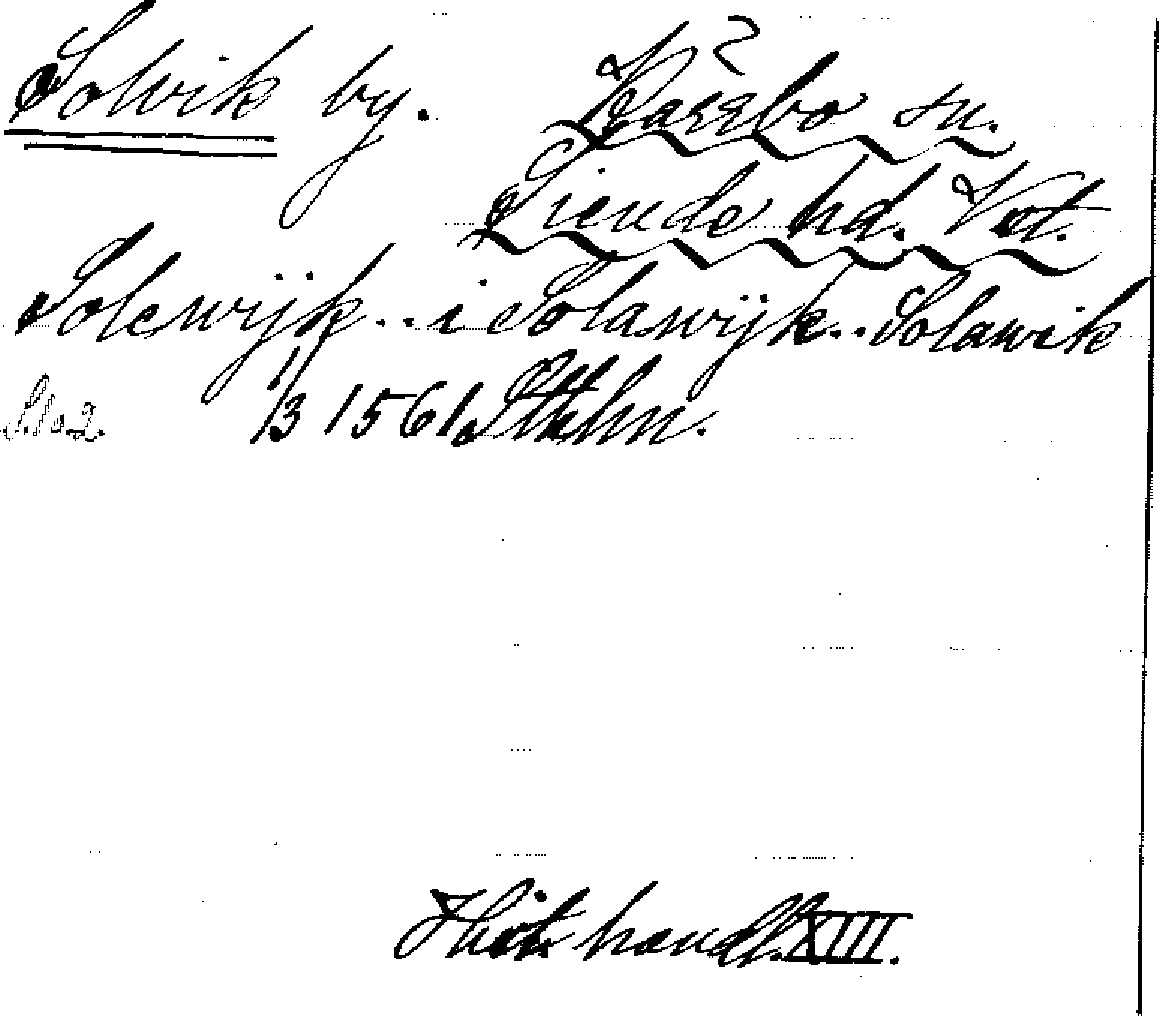 Solvik by. Kärrbo sn.
Siende hd. Vst.
Solewijk .. i Solawijk .. Solawik
1/3 1561 Sthlm.
Hist. handl. XIII.